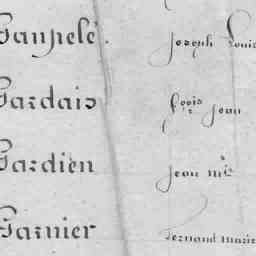 Ganpelé. Joseph Louis
Gardais frois Jean
Gardien Jean Mie
Garnier Fernand Marie